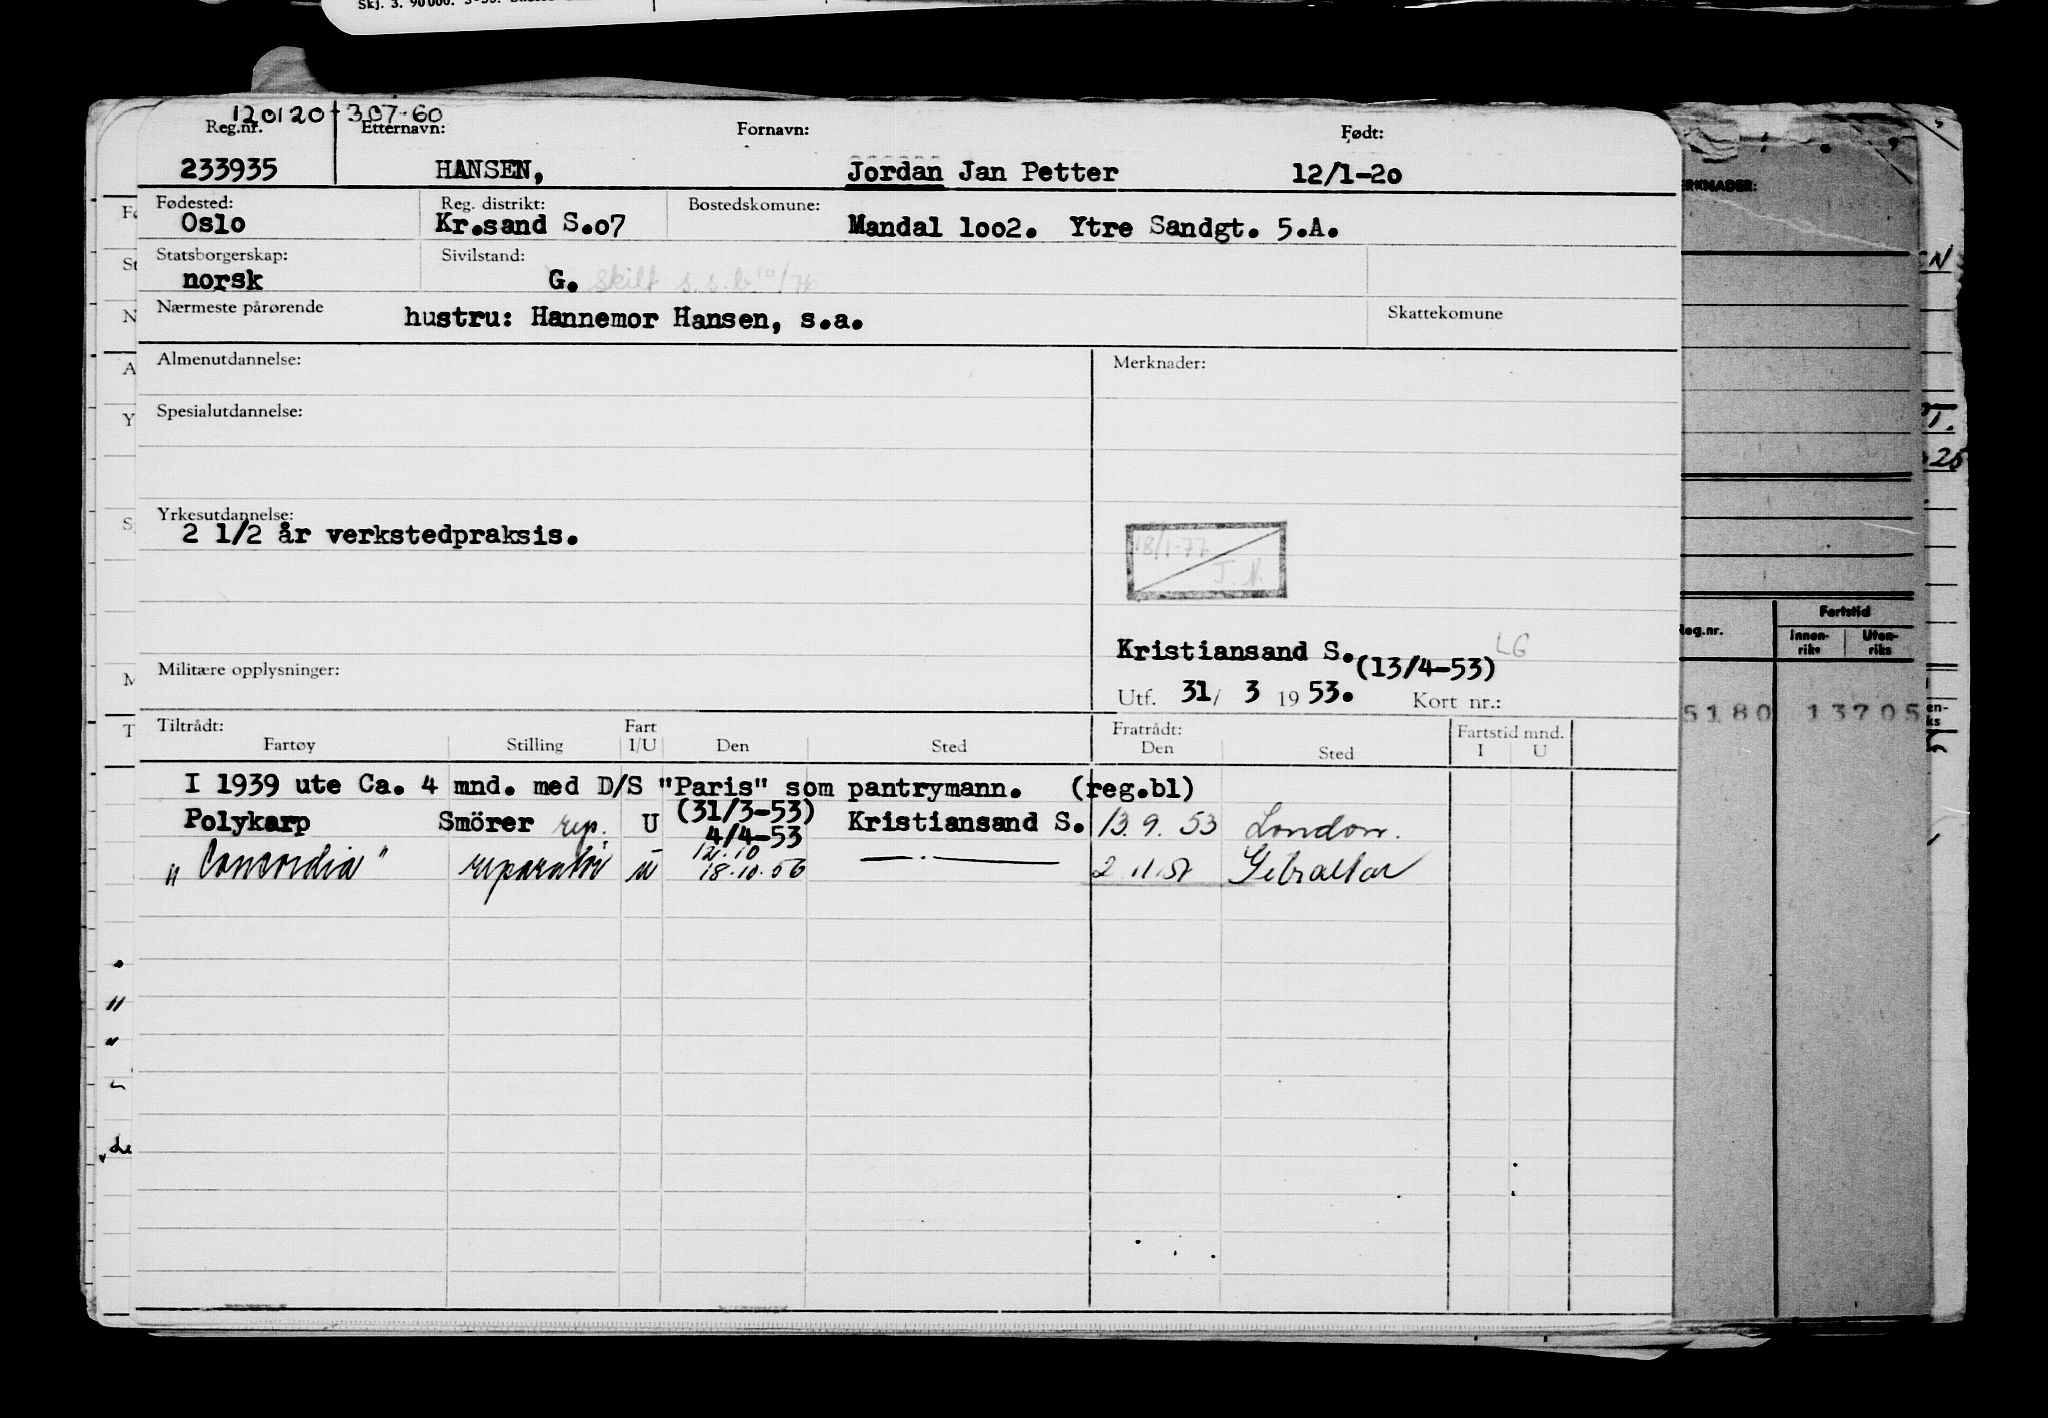 Skj. 3. 90000.
120120-307-60
Reg.nr. Etternavn: Fornavn: Født:
233935 HANSEN, Jordan Jan Petter 12/1-20
Fødested: Reg. distrikt: Bostedskomune:
Oslo Kr.sand S.o7 Mandal 1oo2. Ytre Sandgt. 5.A.
Statsborgerskap: Sivilstand:
norsk G. skilt s.s.b 10/76
Nærmeste pårørende hustru: Hannemor Hansen, s.a. Skattekomune
Almenutdannelse: Merknader:
Spesialutdannelse:
Yrkesutdannelse:
2 1/2 år verkstedpraksis.
18/1-77
J. N.
Kristiansand S. LG
(13/4-53)
Militære opplysninger:
Utf. 31/ 3 19 53. Kort nr.:
Tiltrådt: Fart Fratrådt: Fartstid mnd.
Fartøy Stilling I/U Den Sted Den Sted I U
I 1939 ute Ca. 4 mnd. med D/S "Paris" som pantrymann. (reg.bl)
Polykarp Smörer rep. U (31/3-53) Kristiansand S. 13.9.53 London.
4/4-53
12.10
"Concordia" reparatör u 18.10.56 —.— 2 Gibraltar
ERKNADER:
Reg.nr. Fartstid
Innen-riks Uten-riks
5180 13705